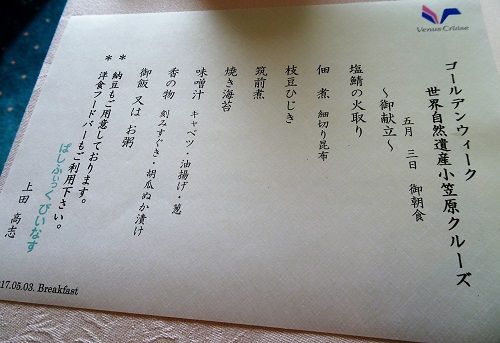 Venus Cruise
ゴールデンウィーク
世界自然遺産小笠原クルーズ
五月 三日 御朝食
～御献立～
塩鯖の火取り
佃 煮 細切り昆布
枝豆ひじき
筑前煮
焼き海苔
味噌汁 キャベツ・油揚げ・葱
香の物 刻みすぐき・胡瓜ぬか漬け
御飯 又は お粥
* 納豆もご用意しております。
* 洋食フードバーもご利用下さい。
ぱしふぃっくびいなす
上田 高志
17.05.03. Breakfast